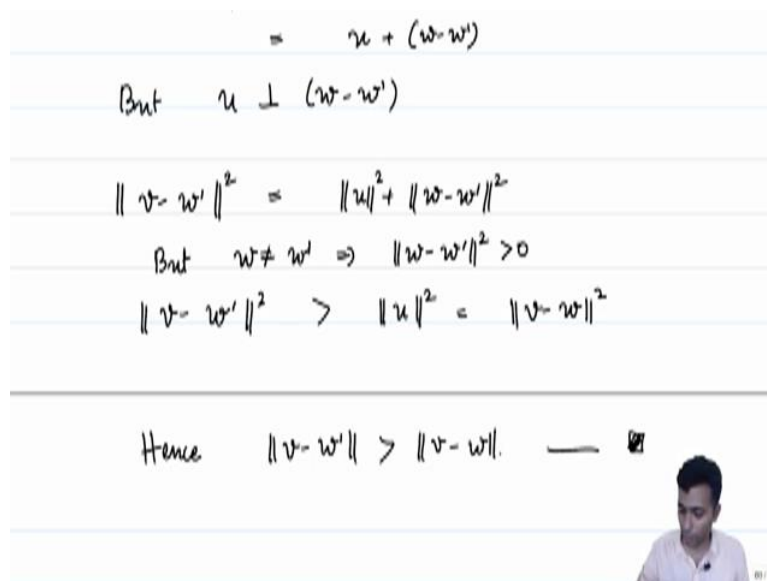 = u + (w-w')
But u ⊥ (w-w')
||v-w'||² = ||u||² + ||w-w'||²
But w≠w' ⇒ ||w-w'||² >0
||v-w'||² > ||u||² = ||v-w||²
Hence ||v-w'|| > ||v-w||. —